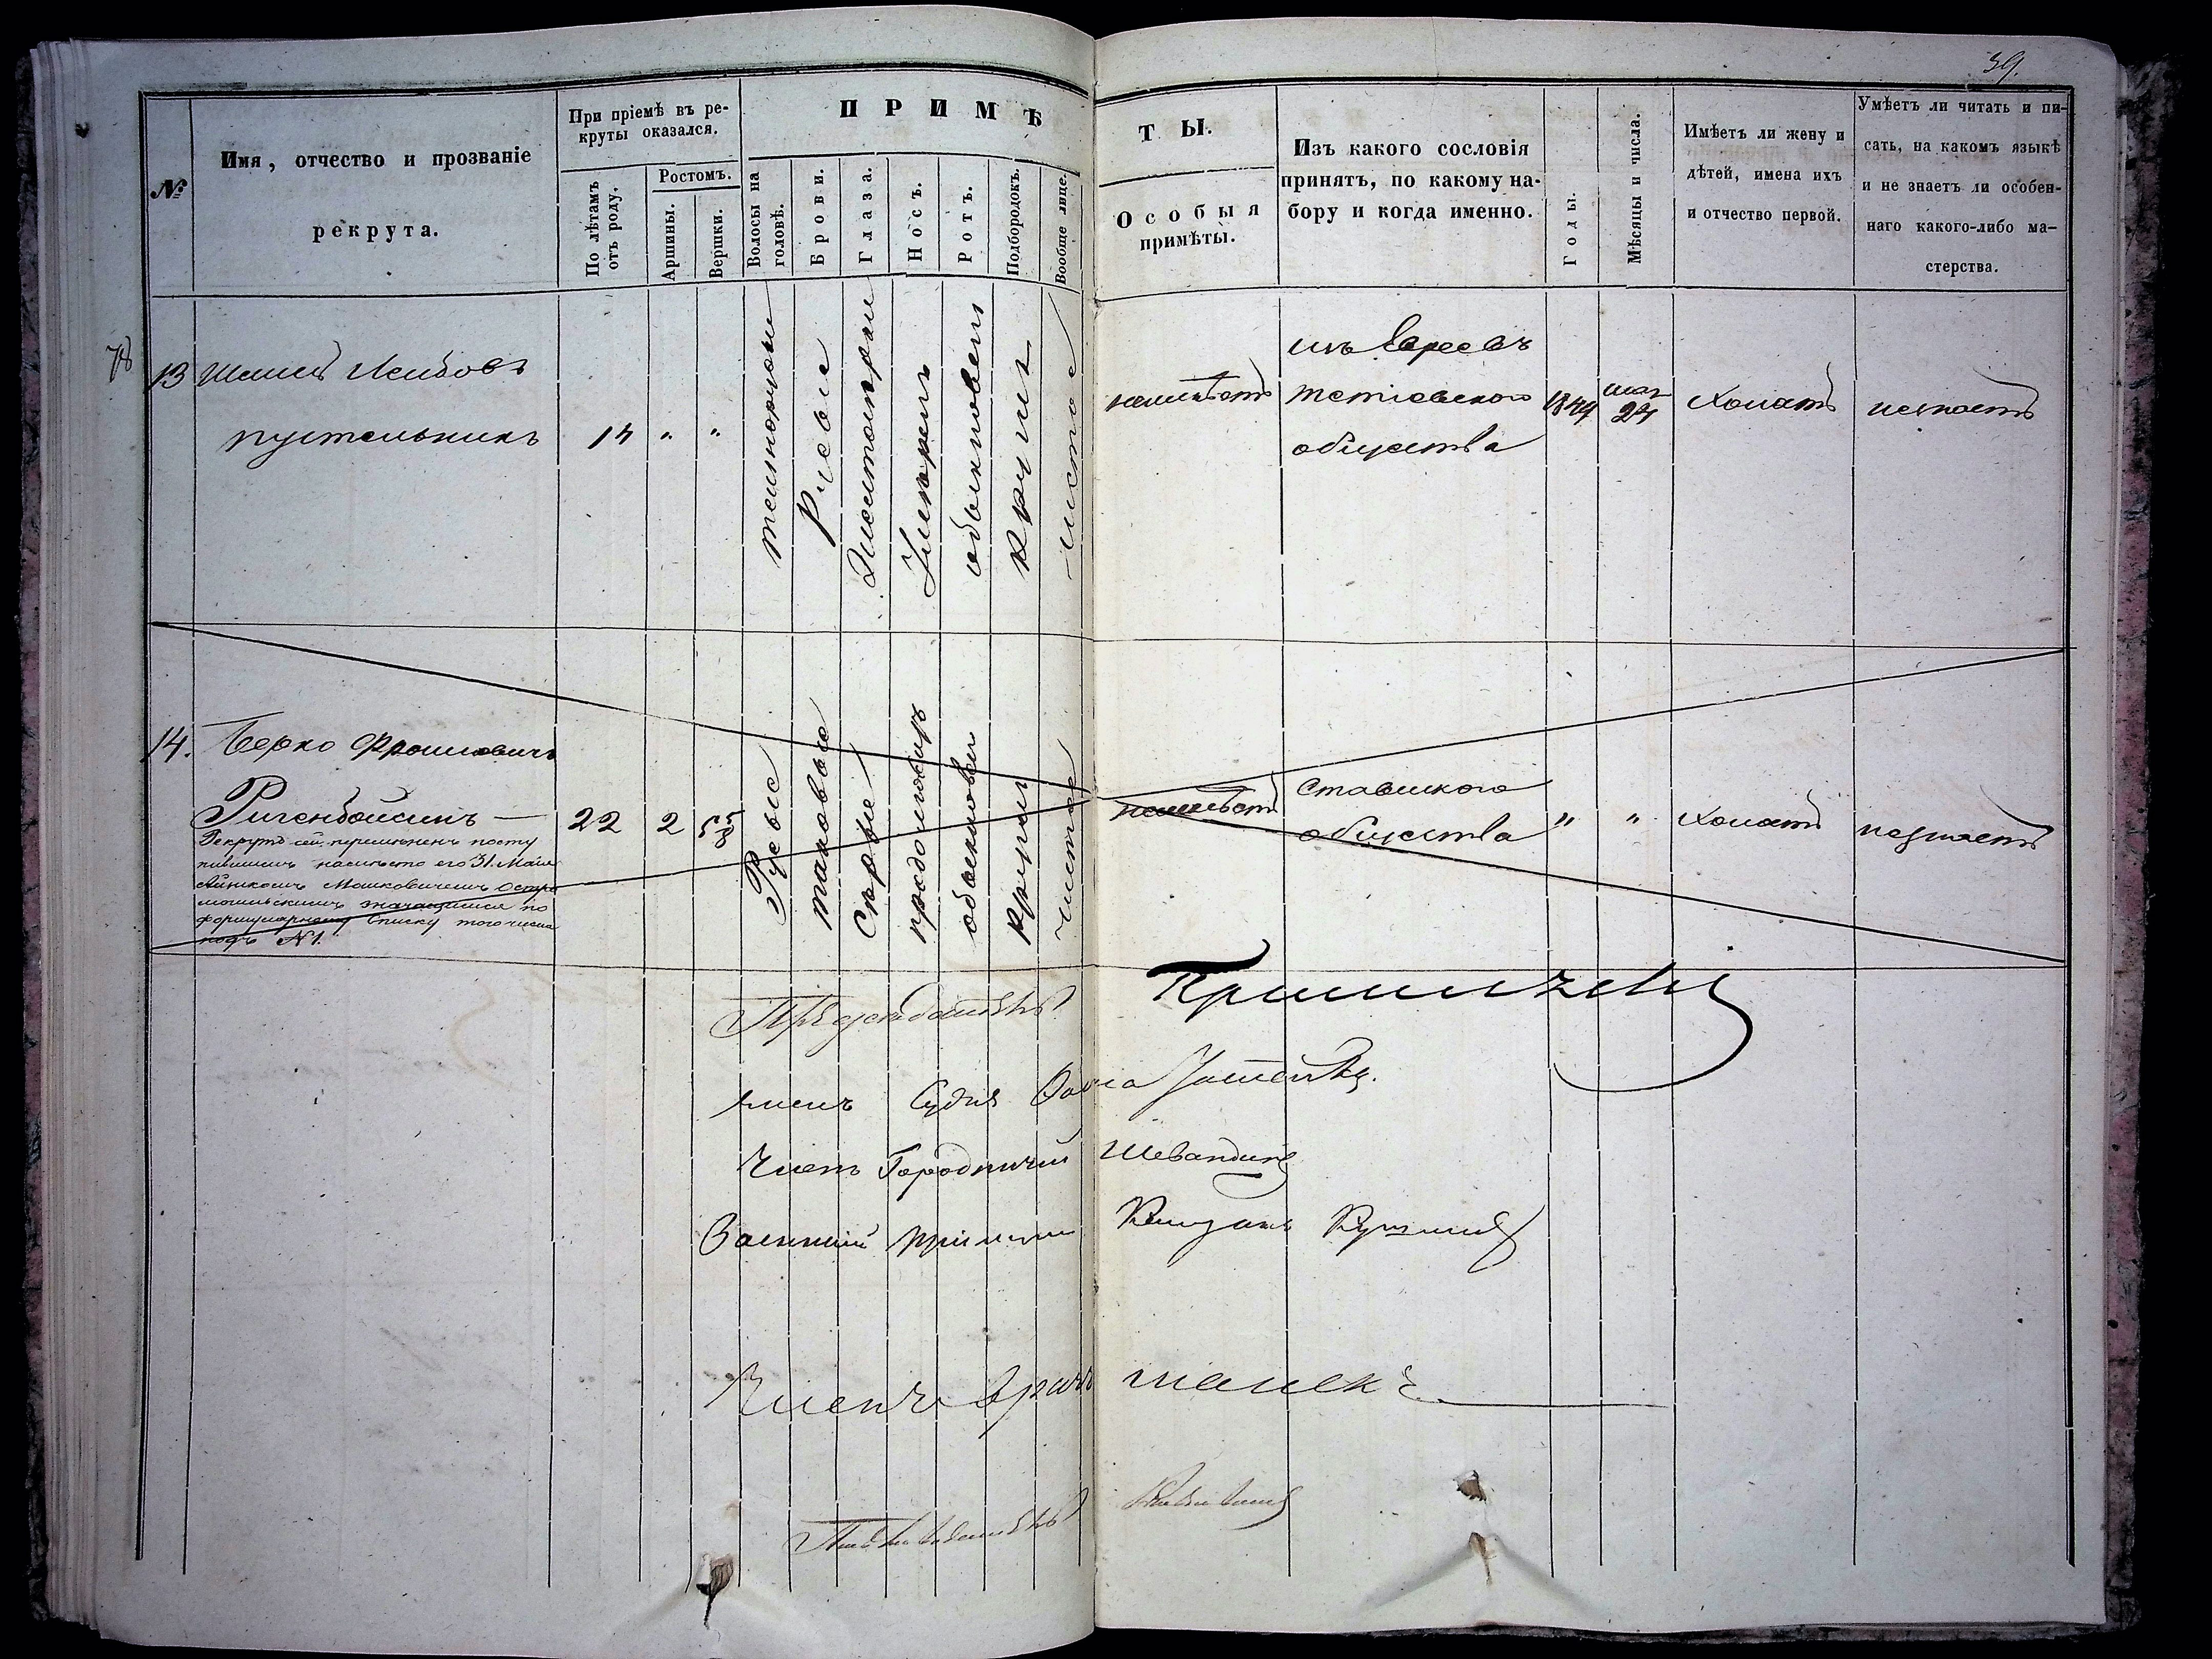 39.
№
Имя, отчество и прозваніе
рекрута.
При пріемѣ въ ре-
круты оказался.
По лѣтамъ
отъ роду.
Ростомъ.
Аршины.
Вершки.
ПРИМѢ
Волосы на
головѣ.
Брови.
Глаза.
Носъ.
Ротъ.
Подбородокъ.
Вообще лице.
ТЫ.
Особыя
примѣты.
Изъ какого сословія
принятъ, по какому на-
бору и когда именно.
Годы.
Мѣсяцы и числа.
Имѣетъ ли жену и
дѣтей, имена ихъ
и отчество первой.
Умѣетъ ли читать и пи-
сать, на какомъ языкѣ
и не знаетъ ли особен-
наго какого-либо ма-
стерства.
78
13 Лейбовъ
пустельникъ
14 " "
темнорусые
Русые
Умѣрен
обыкновен
кругл
чистое
неимѣетъ
изъ Евреевъ
тетіевского
общества
1844
мая
24
Холостъ
незнаетъ
14. Берко Фроимовичъ
Рекрутъ сей перемѣненъ посту
пившимъ намѣсто его 31. Маія
Мошковичемъ
значащимся по
формулярному списку того числа
подъ №1.
22 2 5 5/8
Русые
таковые
Сѣрые
продолговат
обыкновен
Кругл
чистое
неимѣетъ
Ставиского
общества
" "
Холостъ
незнаетъ
Предсѣдатель
Членъ Судья
Членъ Городничий Шевандинъ
Военный пріемщик
Членъ врачъ